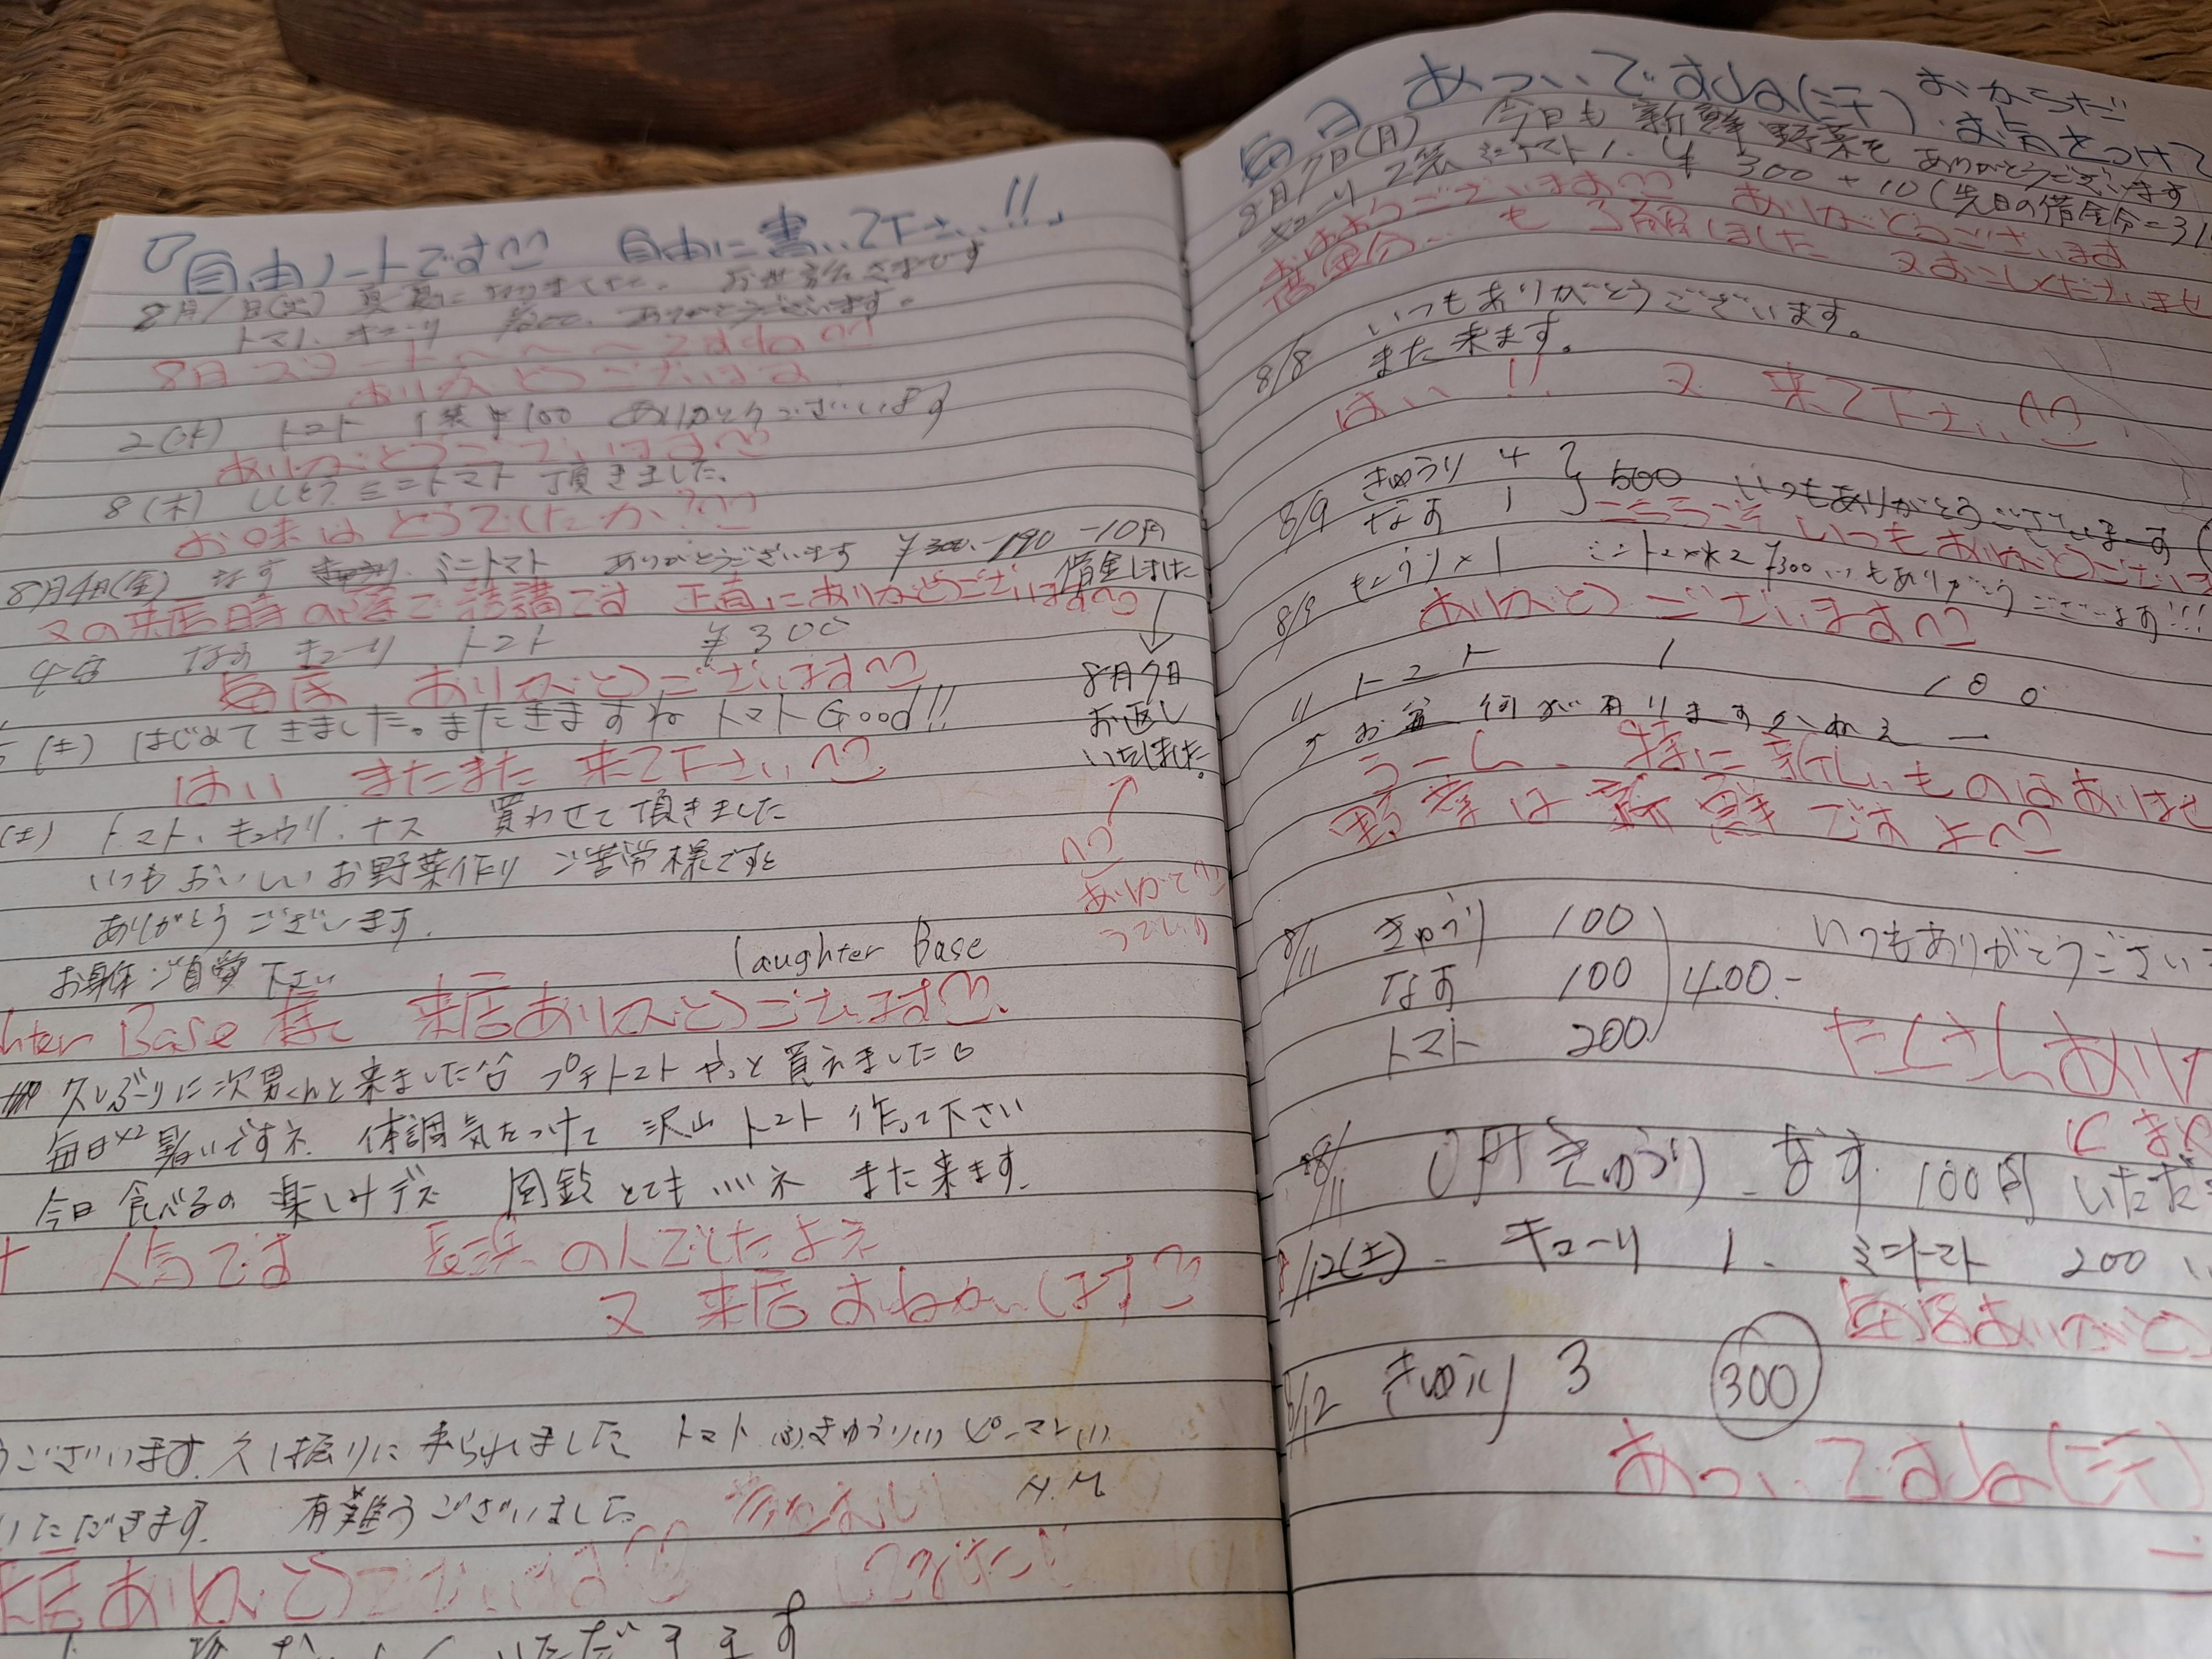 『自由ノートです 自由に書いて下さい!!』
8月1日(火) 真夏になりました。 お世話さまです
トマト、キューリ ¥200. ありがとうございます。
8月スタート〜〜〜ですね
ありがとうございます
2(水) トマト 1袋 ¥100 ありがとうございます
ありがとうございます
8(木) ししとう ミニトマト 頂きました。
お味はどうでしたか?
8月4日(金) なす ミニトマト ありがとうございます ¥300.-190 -10円
借金しました
又の来店時の 結構です 正直にありがとうございます
8月7日
お返し
いたしました。
なす キューリ トマト ¥300
毎度 ありがとうございます
(土) はじめてきました。またきますね トマトGood!!
はい またまた 来て下さい
(土) トマト、キュウリ、ナス 買わせて頂きました
いつもおいしいお野菜作り ご苦労様です
ありがとうございます.
お身体ご自愛下さい
laughter Base
hter Base 様 来店ありがとうございます
久しぶりに次男くんと来ました プチトマトやっと買えました
毎日×2 暑いですネ 体調気をつけて 沢山 トマト 作って下さい
今日 食べるの 楽しみデス 風鈴とてもいいネ また来ます.
人気です 長浜の人でしたよネ
又 来店おねがいします
うございます. 久し振りに来られました トマト きゅうり(1) ピーマン(1)
いただきます. 有難うございました N.M
来店ありがとうございます
いただきます
毎日 あついですね(汗) おからだ
お気をつけて
8月7日(月) 今日も 新鮮野菜を ありがとうございます
キューリ 2袋 ミニトマト 1. ¥300 + 10 (先日の借金分=31
ありがとうございます ありがとうございます
借金分… も 了解しました 又おこしくださいませ
8/8 いつもありがとうございます。
また来ます。
はい!! 又 来て下さい
8/9 きゅうり 4
なす 1 } 500 いつもありがとうございます
こちらこそ いつもありがとうござい
8/9 きゅうり×1 ミニトマト×2 ¥300 いつもありがとうございます!!!
ありがとうございます
11 トマト 1 100
お盆 何が有りますかねえー
うーん、特に新しいものはありませ
野菜は新鮮ですよ
8/11 きゅうり 100
なす 100 ) 400.-
トマト 200
いつもありがとうござい
たくさんあり
8/11 きゅうり、なす 100円 いただ
8/12(土). キューリ 1、 ミニトマト 200
毎度ありがと
8/12 きゅうり 3 300
あついですね(汗)